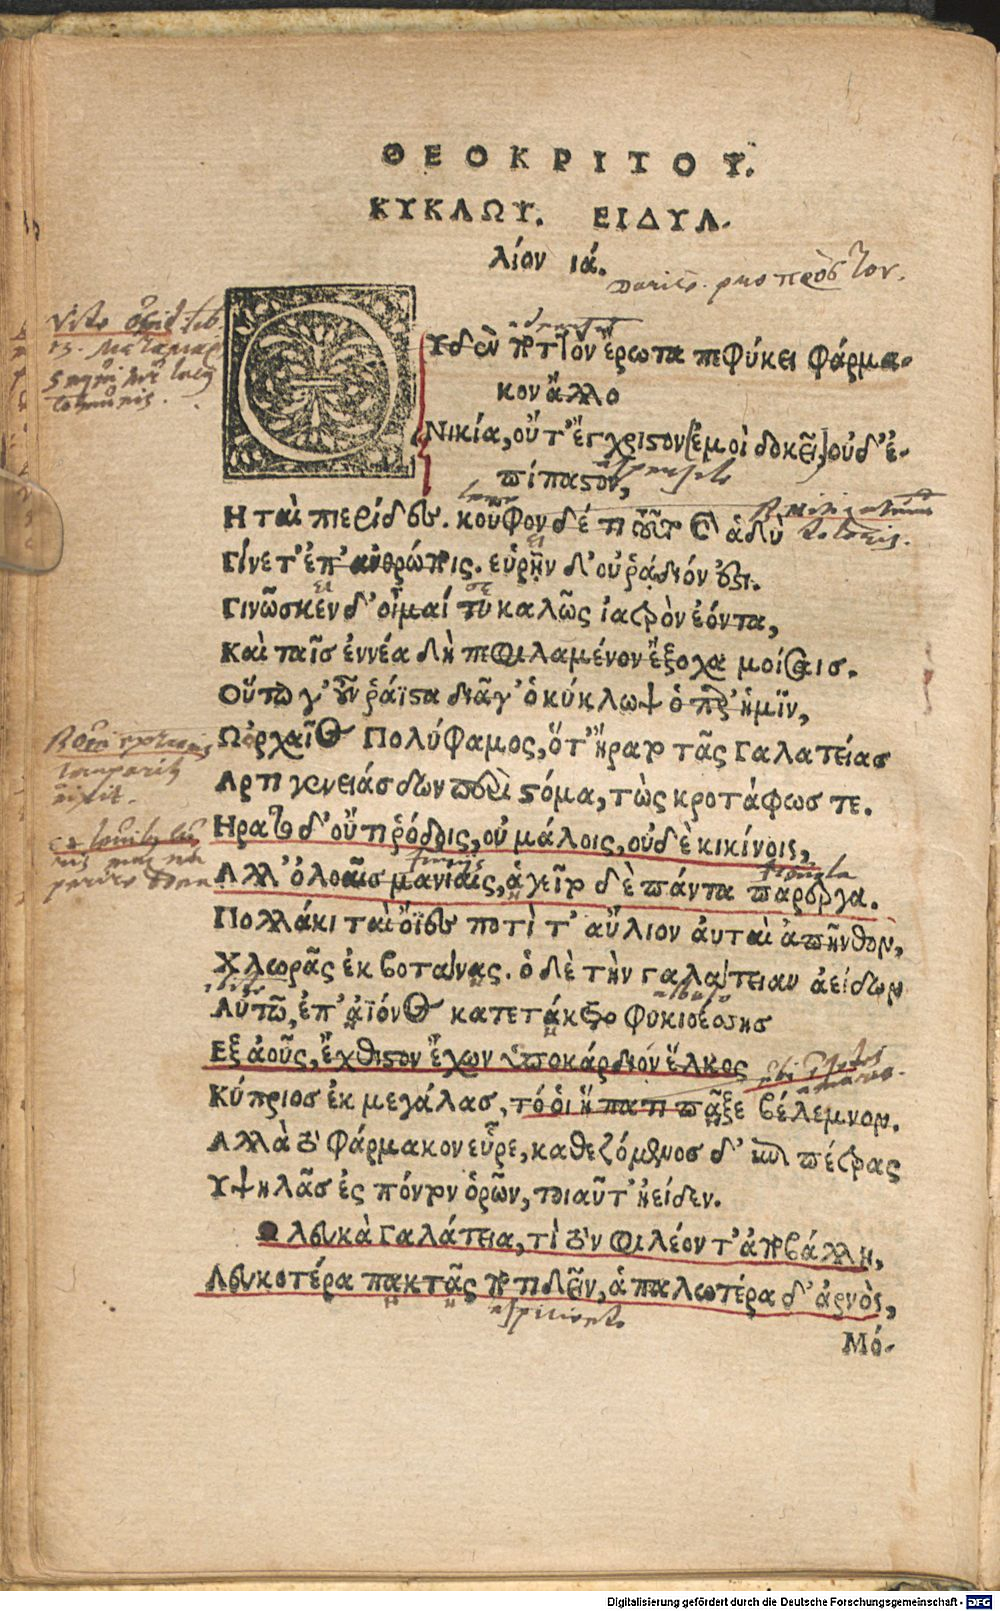 ΘΕΟΚΡΙΤΟΥ.
ΚΥΚΛΩΨ. ΕΙΔΥΛ-
λίον ιά.
ΟΥδὲν ποττὸν ἔρωτα πεφύκει φάρμα-
κον ἄλλο
Νικία, οὔτ' ἔγχριστον (ἐμοὶ δοκεῖ,) οὐδ' ἐ-
πίπαστον,
Η ταὶ πιερίδες. κοῦφον δέ τι τοῦτο καὶ ἁδὺ
Γίνετ' ἐπ' ἀνθρώποις. εὑρῆν δ' οὐ ῥάδιόν ἐστι.
Γινώσκεν δ' οἶμαί τυ καλῶς ἰατρὸν ἐόντα,
Καὶ ταῖς ἐννέα δὴ πεφιλαμένον ἔξοχα μοίσαις.
Οὕτω γ' οὖν ῥάϊστα διᾶγ' ὁ κύκλωψ ὁ παρ' ἡμῖν,
Ωρχαῖος Πολύφαμος, ὅτ' ἤρατο τᾶς Γαλατείας
Αρτι γενειάσδων περὶ στόμα, τὼς κροτάφως τε.
Ηρατο δ' οὔτι ῥόδοις, οὐ μάλοις, οὐδὲ κικίνοις,
Αλλ' ὀλοαῖς μανίαις, ἁγεῖτο δὲ πάντα πάρεργα.
Πολλάκι ταὶ ὄϊες ποτὶ τ' αὔλιον ἀυταὶ ἀπῆνθον,
Χλωρᾶς ἐκ βοτάνας. ὁ δὲ τὴν γαλάτειαν ἀείδων
Αὐτῶ, ἐπ' ἀϊόνος κατετάκετο φυκιοέσσης
Εξ ἀοῦς, ἔχθιστον ἔχων ὑποκάρδιον ἕλκος
Κύπριος ἐκ μεγάλας, τό οἱ ἥπατι πᾶξε βέλεμνον.
Αλλὰ τὸ φάρμακον εὗρε, καθεζόμενος δ' ἐπὶ πέτρας
Υψηλᾶς ἐς πόντον ὁρῶν, τοιαῦτ' ἤειδεν.
Ω λευκὰ Γαλάτεια, τί τὸν φιλέοντ' ἀποβάλλη,
Λευκοτέρα πακτᾶς ποτιδεῖν, ἁπαλωτέρα δ' ἀρνὸς,
Μό-
Digitalisierung gefördert durch die Deutsche Forschungsgemeinschaft - DFG